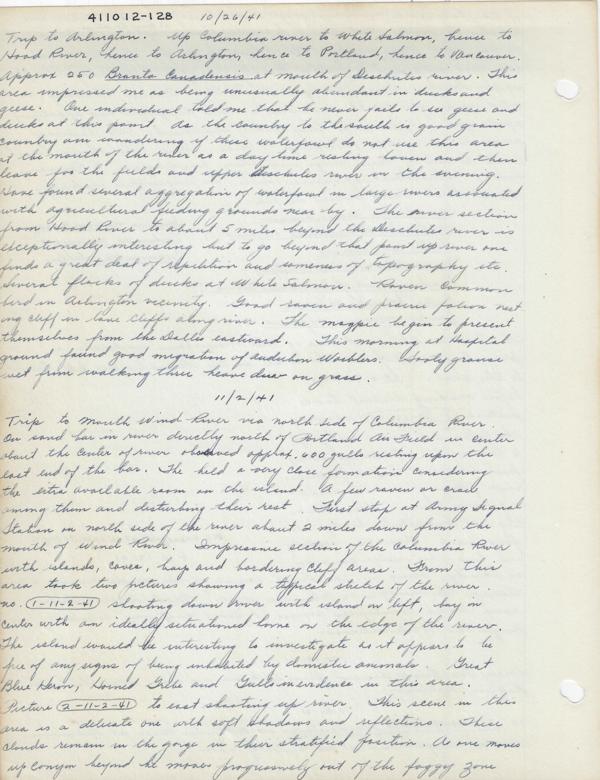 411012-128 10/26/41
Trip to Arlington. Up Columbia river to White Salmon, hence to
Hood River, hence to Arlington, hence to Portland, hence to Vancouver.
Approx 250 Branta Canadensis at mouth of Deschutes river. This
area impressed me as being unusually abundant in ducks and
geese. One individual told me that he never fails to see geese and
ducks at this point. As the country to the south is good grain
country am wondering if these waterfowl do not use this area
at the mouth of the river as a day time resting haven and then
leave for the fields and upper Deschutes river in the evening.
Have found several aggregation of waterfowl in large rivers associated
with agricultural feeding grounds near by. The river section
from Hood River to about 5 miles beyond the Deschutes river is
exceptionally interesting but to go beyond that point up river one
finds a great deal of repetition and sameness of topography etc.
Several flocks of ducks at White Salmon. Raven common
bird in Arlington vicinity. Good raven and prairie falcon nest
ing cliff in lava cliffs along river. The magpie begin to present
themselves from the Dalles eastward. This morning at Hospital
ground found good migration of Audubon Warblers.
wet from walking thru heavy dew on grass.
11/2/41
Trip to mouth Wind River via north side of Columbia River.
On sand bar in river directly north of Portland Air Field in center
about the center of river observed approx. 600 gulls resting upon the
east end of the bar. The held a very close formation considering
the extra available room on the island. A few raven or crow
among them and disturbing their rest. First stop at Army Signal
Station on north side of the river about 2 miles down from the
mouth of Wind River. Impressive section of the Columbia River
with islands, coves, bays and bordering cliff areas. From this
area took two pictures showing a typical sketch of the river.
no. 1-11-2-41 shooting down river with island on left, bay in
center with an ideally situationed home on the edge of the river.
The island would be interesting to investigate as it appears to be
free of any signs of being inhabited by domestic animals. Great
Blue Heron, Horned Grebe and Gulls in evidence in this area.
Picture 2-11-2-41 to east shooting up river. This scene in this
area is a delicate one with soft shadows and reflections. These
clouds remain in the gorge in their stratified position. As one moves
up canyon beyond he moves progressively out of the foggy zone